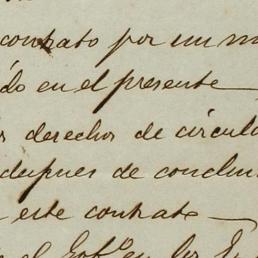 contrato por un m
do en el presente
s derechos de circula
despues de conclu
este contrato
el Gob.º en los E